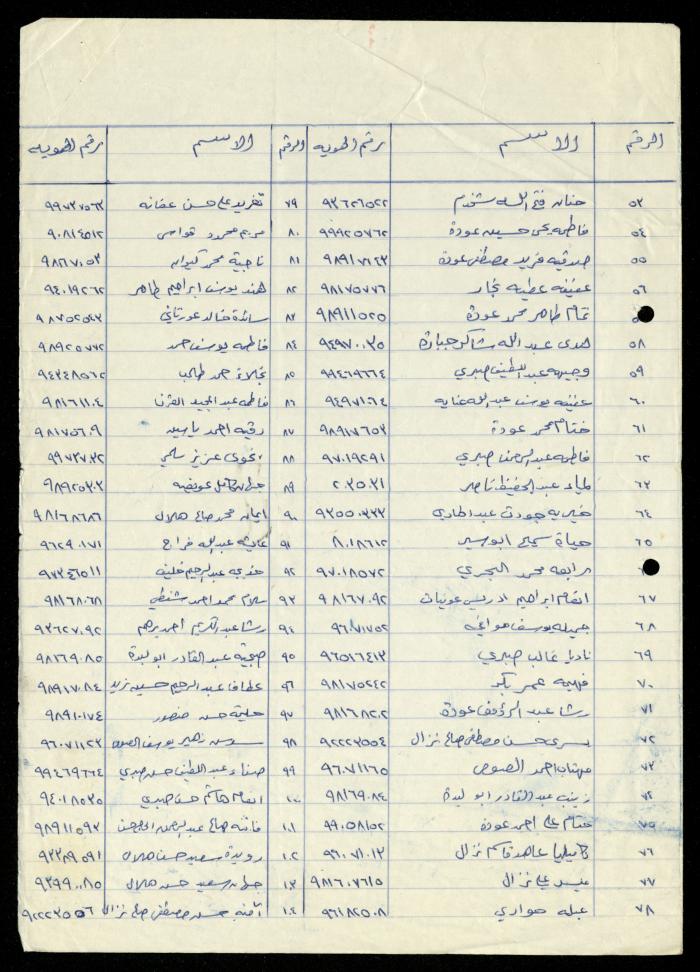 الرقم الاسم رقم الهويه الرقم الاسم رقم الهويه
٥٣ حنان فتح الله شخدم ٩٣٦٢٦٥٢٢ ٧٩ تغريد علي حسن عفانه ٩٩٧٣٧٥٦٣
٥٤ فاطمه يحيى حسين عودة ٩٩٩٢٥٧٦٢ ٨٠ مريم محمود قواس ٩٠٨١٤٥١٢
٥٥ صدقيه فريد مصطفى عودة ٩٨٩١٧١٢٣ ٨١ ناجية محمد ٩٨٦٧٠٥٣
٥٦ عفيفه عطيه نجار ٩٨١٧٥٧٧٦ ٨٢ هند يوسف ابراهيم طاهر ٩٤٠١٩٢٦٢
تمام طاهر محمد عودة ٩٨٩١١٥٢٥ ٨٣ سائدة خالد عورتاني ٩٨٧٥٢٥٤٣
٥٨ هدى عبد الله شاكر جبارة ٩٤٩٧٠٠٣٥ ٨٤ فاطمه يوسف حمد ٩٨٩٢٥٧٧٢
٥٩ وجيهه عبد اللطيف صبري ٩٩٤٦٩٦٦٤ ٨٥ نجلاء حمد طالب ٩٤٣٤٨٥٦٢
٦٠ عفيفه يوسف عبد الله عنايه ٩٤٩٧١٠٦٤ ٨٦ فاطمه عبد المجيد ٩٨١٦١١٠٤
٦١ ختام محمد عودة ٩٨٩١٧٦٥٣ ٨٧ رقيه احمد ياسين ٩٨١٧٥٦٠٩
٦٢ فاطمه عبد الرحمن صبري ٩٧٠١٩٢٩١ ٨٨ نجوى عزيز سلمي ٩٩٧٣٧٠٣٢
٦٣ لمياء عبد الحفيظ ناصر ٢٠٣٥٠٣١ ٨٩ جهان كامل عويضه ٩٨٩٢٥٣٠٣
٦٤ خيريه جودت عبد الهادي ٩٣٥٥٠٣٣٣ ٩٠ ايمان محمد صالح هلال ٩٨١٦٨٦٨٦
٦٥ حياة سميح ابو سير ٨٠١٨٦١٢ ٩١ عائشه عبد الله فراح ٩٦٢٩٠١٧١
رابعه محمد البحري ٩٧٠١٨٥٧٢ ٩٢ عبد الرحيم خليفه ٩٧٣٤٦٥١١
٦٧ انعام ابراهيم ادريس عونيات ٩٨١٦٧٠٩٢ ٩٣ سلام محمد احمد شنطي ٩٨١٦٨٠٦٨
٦٨ جميله يوسف ٩٦٠٧١٧٥٢ ٩٤ رشا عبد الكريم احمد ٩٣٦٢٧٠٩٢
٦٩ ناديا غالب صبري ٩٦٥١٦٤١٣ ٩٥ صبحية عبد القادر ابو لبدة ٩٨١٦٩٠٨٥
٧٠ فهيمه عمر بكر ٩٨١٧٥٢٤٢ ٩٦ عطاف عبد الرحيم حسين زيد ٩٨٩١٧٠٨٤
٧١ رشا عبد الرؤوف عودة ٩٨١٦٨٢٠٢ ٩٧ حليمة حسن منصور ٩٨٩١٠١٧٤
٧٢ يسرى حسن مصطفى صالح نزال ٩٢٢٢٣٥٥٤ ٩٨ سوسن زهير يوسف ٩٦٠٧١١٢٣
٧٣ مهتاب احمد الصوص ٩٦٠٧١١٦٥ ٩٩ صفاء عبد اللطيف حسن صبري ٩٩٤٦٩٦٦٤
٧٤ زينب عبد القادر ابو لبدة ٩٨١٦٩٠٨٤ ١٠٠ انعام هاشم حسن صبري ٩٤٠١٨٥٣٥
٧٥ ختام علي احمد عودة ٩٩٠٥٨١٥٢ ١٠١ فائقه صالح عبد الرحمن ٩٨٩١١٥٩٣
٧٦ كاميليا عاهد قاسم نزال ٩٦٠٧١٠١٣ ١٠٢ رويدة سعيد حسن هلال ٩٢٣٨٩٥٩١
٧٧ عبير علي نزال ٩٨١٦٠٧٦١٥ ١٠٣ جهان سعيد حسن هلال ٩٣٩٩٠٠٨٥
٧٨ عبله هواري ٩٦١٨٢٥٠٨ ١٠٤ آمنه حسن مصطفى صالح نزال ٩٢٢٢٣٥٥٦